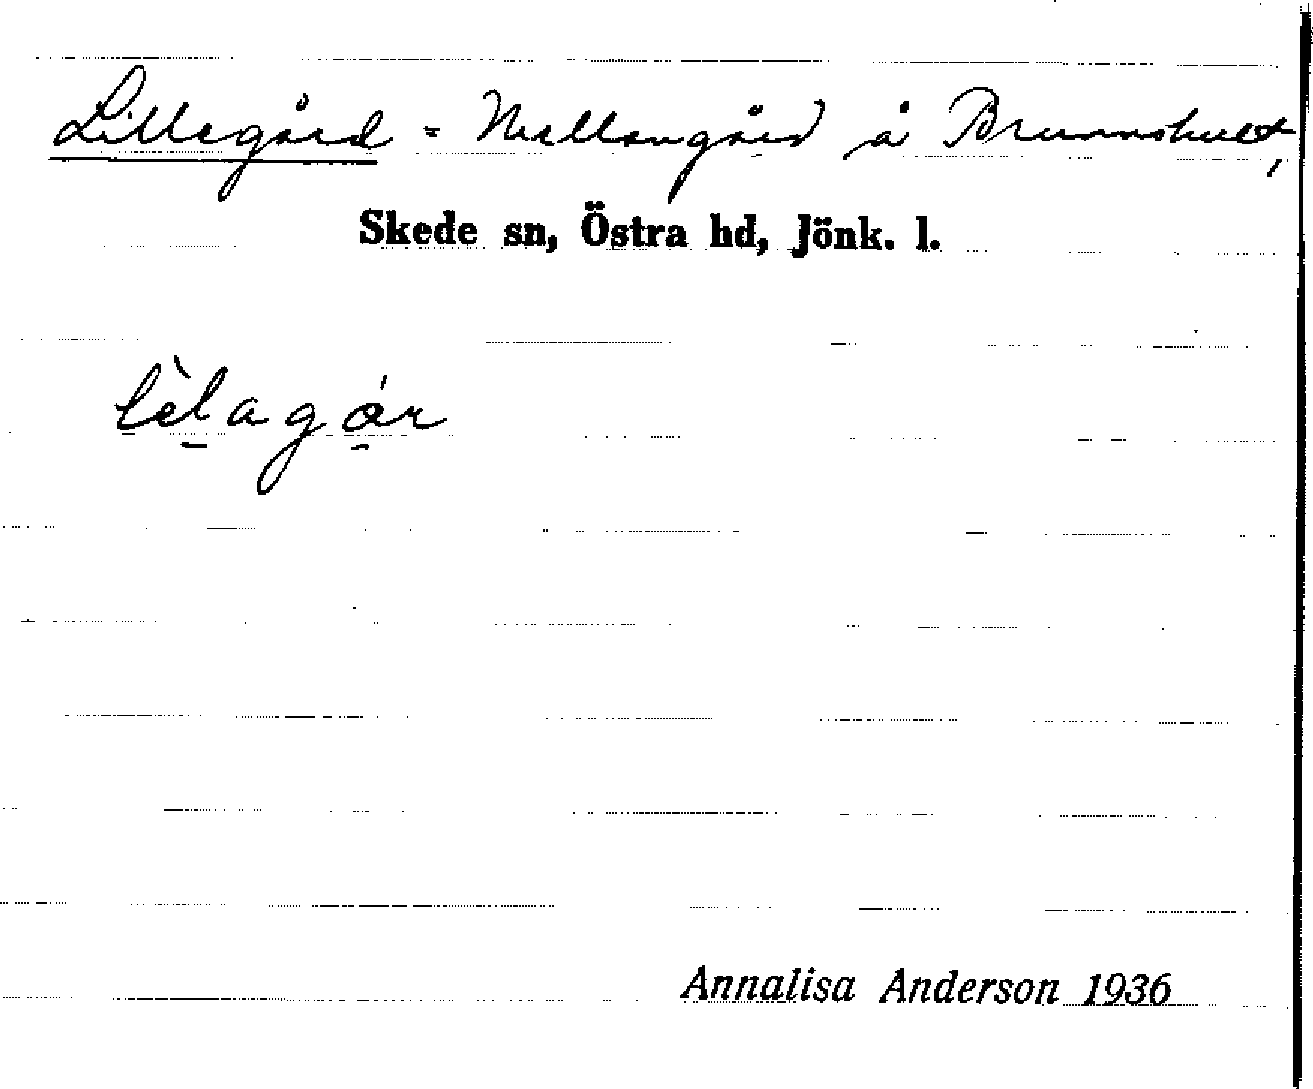 Lillegård = Mellangård å Brunnshult,
Skede sn, Östra hd, Jönk. l.
lèlagár
Annalisa Anderson 1936